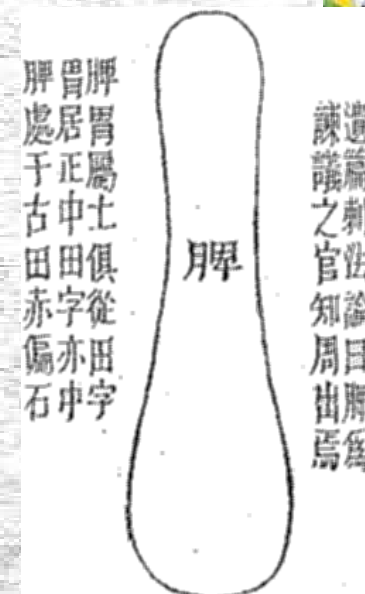 遺篇刺法論曰脾爲
諫議之官知周出焉
脾
脾胃屬土俱從田字
胃居正中田字亦中
脾處于古田赤偏石